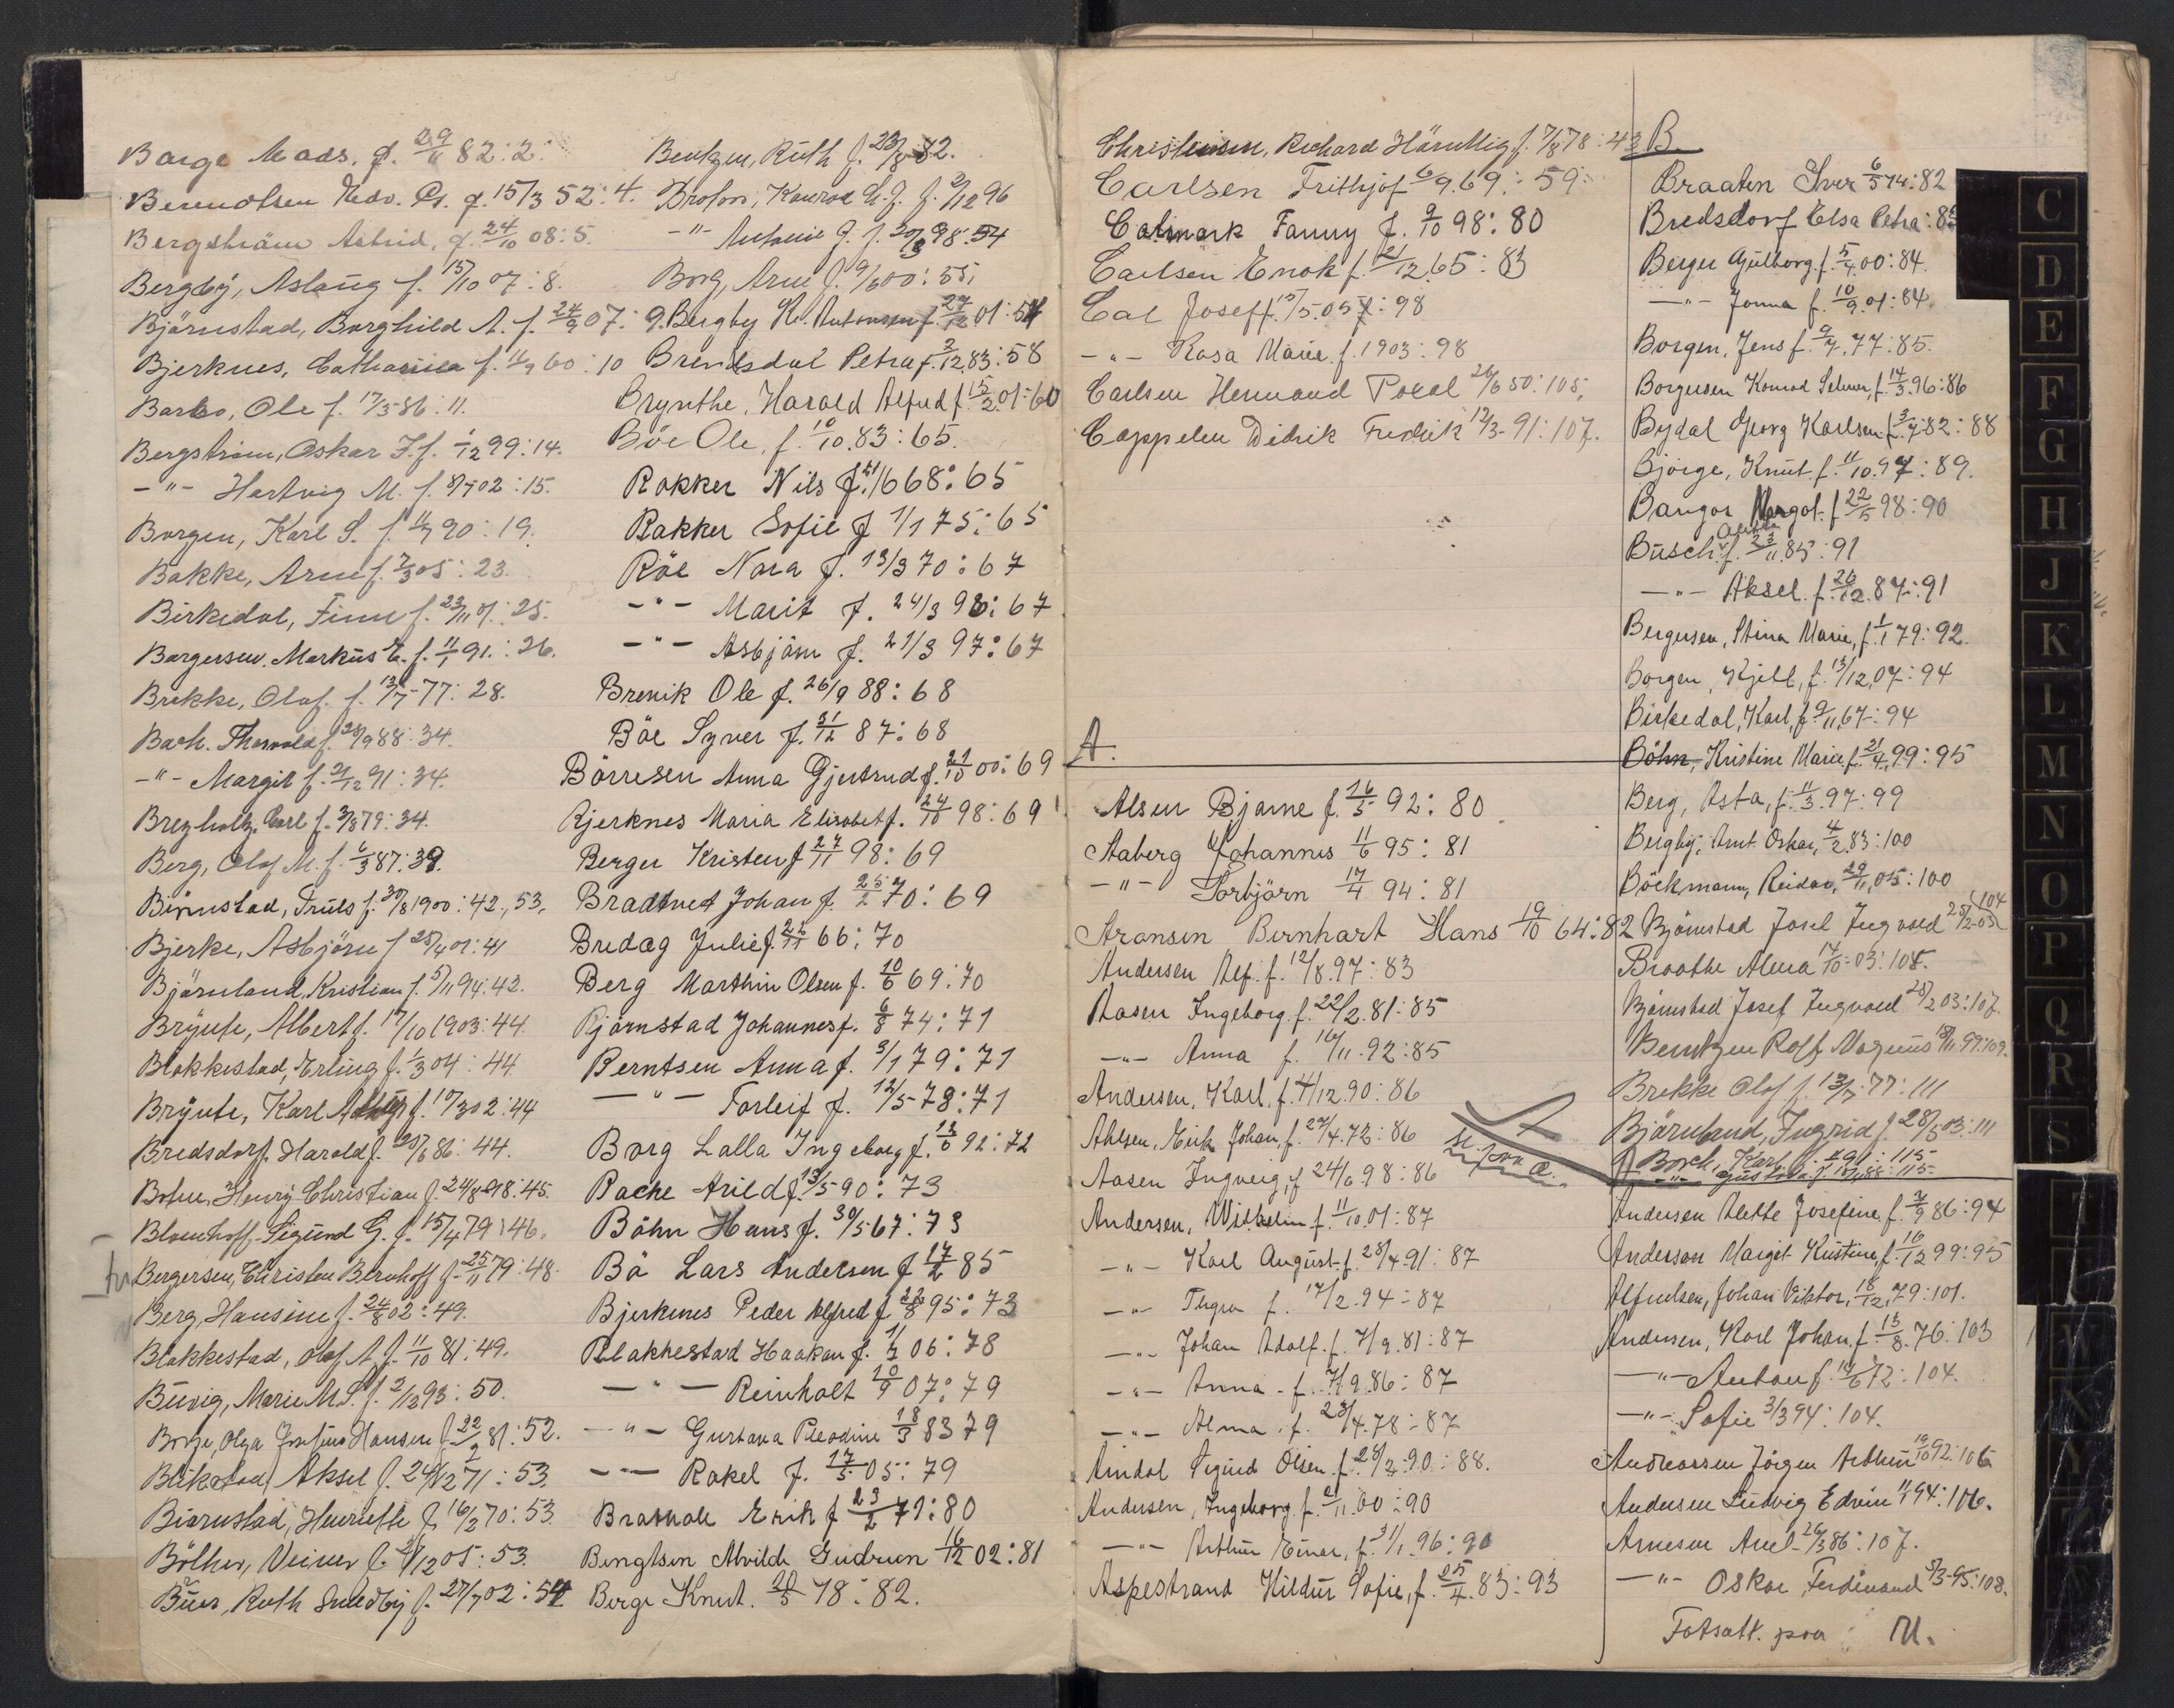 Barge Mads. f. 29/11 82: 2.
Berendtsen Edv. f. 15/3 52: 4.
Bergström Astrid, f. 24/10 08: 5.
Bergby, Aslaug f. 15/10 07: 8.
Björnstad, Borghild A. f. 24/9 07: 9.
Bjerknes, Catharina f. 60: 10
Barbo, Ole f. 17/3 86: 11.
Bergström, Oskar F. f. 1/12 99: 14.
-"- Hartvig M. f. 8/7 02: 15.
Borgen, Karl S. f. 90: 19.
Bakke, Arne f. 7/3 05: 23.
Birkedal, Finn f. 23/11 01: 25.
Borgersen. Markus E. f. 11/1 91.: 26.
Brekke, Olaf. f. 13/7-77: 28.
Bach. Thorvald f. 28/9 88: 34.
-"- Margit f. 21/12 91: 34.
Bregholtz, Carl f. 3/8 79: 34.
Berg, Olaf M. f. 6/3 87: 39.
Björnstad, Truls f. 30/8 1900: 42., 53.
Bjerke, Asbjörn f 28/4 01: 41
Björnland, Kristian f. 5/11 94: 42.
Brynte, Albert f. 17/10 1903: 44.
Blakkestad, Erling f. 1/3 04: 44
Brynte, Karl f. 17/3 02: 44
Bredsdorf. Harald f. 86: 44.
Bohn, Henry Christian f. 24/8-98: 45.
Blomhoff-Sigurd G. f. 15/4 79: 46.
Bergersen, Christen Bernhoff f. 25/11 79: 48.
Berg, Hansine f. 24/8 02: 49.
Blakkestad, Olaf A. f. 11/10 81: 49.
Buvig, Marie M. S. f. 2/12 93: 50.
Borge, Olga Josefine Hansen f. 22/9 81: 52.
Blikstad, Aksel f. 24/12 71: 53.
Björnstad, Henriette f. 16/2 70: 53.
Bölher, Weiner f. 12 05: 53.
Buer, Ruth Smedby f. 27/7 02: 54
Bentzen, Ruth f. 23/8-82.
Brofos, Konrad f. 2/12 96
-"- Antonie G. f. 20/3 98: 54
Borg, Arne f. 9/6 00: 55.
Bergby Kr. Antonsen f. 27/12 01: 54
Brendsdal Petra f. 2/12 83: 58
Brynthe, Harald Alfred f. 15/2 01: 60
Böe Ole, f. 10/10. 83: 65.
Bakker Nils f. 21/6 68: 65
Bakker Sofie f 1/1 75: 65
Böe Nora f. 13/3 70: 67
-"- Marit f. 24/3 98: 67
-"- Asbjörn f. 21/3 97: 67
Brenik Ole f. 26/9 88: 68
Böe Syver f. 31/12 87: 68
Börresen Anna Gjertrud f. 21/10 00: 69
Bjerknes Maria Elisabet f. 24/10 98: 69
Berger Kristen f 27/11 98: 69
Bradtvet Johan f. 25/2 70: 69
Bredag Julie f. 25/11 66: 70
Berg Marthin Olsen f. 10/6 69: 70
Bjornstad Johannes f. 6/8 74: 71
Berntsen Anna f. 3/1 79: 71
-"- Torleif f. 12/5-78: 71
Borg Lalla Ingeborg f. 13/6 92: 72
Bache Arild f. 13/5 90: 73
Böhn Hans f. 30/5 67: 73
Bö Lars Andersen f 17/2 85
Bjerkenes Peder Alfred f 22/8 95: 73
Blakkestad Haakon f. 06: 78
-"- Reinholt 20/9 07: 79
-"- Gustava Pleodine 18/3 83 79
-"- Rakel f. 17/5 05: 79
Bratvold Erik f 23/2 71: 80
Bengtsen Alvilde Gudrun 16/12 02: 81
Berge Knut. 20/5 78: 82.
Christensen, Richard f. 7/8 78: 43
Carlsen Frithjof 6/9. 69: 59.
Calmark Fanny f. 9/10 98: 80
Carlsen Enok f. 21/12 65: 83
Cal Josef f. 15/5. 05: 98
-"- Rosa Marie f. 1903: 98
Carlsen Hermand Poeal 26/6 50: 105.
Cappelen Didrik Fredrik 12/3-91: 107.
A.
Alsen Bjarne f. 16/5 92: 80
Aaberg Johannes 11/6 95: 81
-"- Torbjörn 17/4 94: 81
Aronsen Bernhart Hans 19/10 64: 82
Andersen Alf. f. 12/8. 97: 83
Aasen Ingeborg. f. 22/2. 81: 85
-"- Anna f. 16/11. 92: 85
Andersen, Karl, f. 4/12. 90: 86
Ahlsen, Erik Johan, f. 27/4. 72: 86
Aasen Ingveig, f 24/6 98: 86
Andersen, Wilhelm f. 11/10. 01: 87
-"- Karl August. f. 28/4. 91: 87
-"- Thyra f. 17/2. 94: 87
-"- Johan Adolf. f. 7/9. 81: 87
-"- Anna f. 7/9. 86: 87
-"- Alma. f. 23/4. 78: 87
Amdal Sigurd Olsen. f. 28/2. 90: 88.
Andersen, Ingeborg. f. 21/11. 00: 90
-"- Arthur Einar, f. 31/1. 96: 90
Aspestrand Hildur Sofie, f. 25/4. 83: 93
se foran A.
B.
Braaten Iver 6/5 74: 82
Bredsdorf Elsa Petra: 83
Berger Gulborg. f. 5/4. 00: 84.
-"- Jonna f. 10/9. 01: 84.
Borgen, Jens f. 9/7. 77: 85.
Borgersen Konrad Selmer, f. 14/3. 96: 86
Bydal Georg Karlsen f. 3/7 82: 88
Bjorge, Knut f. 11/10. 97: 89.
Bangor Margot. f 22/5 98: 90
Busch, f. 23/11. 85: 91
-"- Aksel. f. 26/12. 87: 91
Bergersen, Stina Marie, f. 1/1 79: 92.
Borgen, Kjell, f. 13/12. 07: 94
Birkedal, Karl, f 9/11. 67: 94
Böhn, Kristine Marie f. 21/4. 99: 95
Berg, Asta, f. 11/3. 97: 99
Bergby, Arnt Oskar, 4/2. 83: 100
Böckmann, Reidar, 29/11. 05: 100
Björnstad Josef Ingvald 25/2-03 (104
Braathe Alma 14/10-03: 105.
Björnstad Josef Ingvald 25/2 03: 107.
Berntzen Rolf Magnus 18/11. 99: 109.
Brekke Olaf f. 13/7. 77: 111
Björnland, Ingrid f. 28/5 03: 111
Borch, Karl f. 91: 115
-"- Gustava f. 88: 115
Andersen Alette Josefine, f. 7/9 86: 94
Anderson Margit Kristine, f. 16/12 99: 95
Alfredsen, Johan Viktor, 18/12. 79: 101.
Andersen, Karl Johan, f. 13/8. 76: 103
-"- Anton f. 14/6 72: 104.
-"- Sofie 3/3 94: 104.
Andreassen Jörgen Arthur 19/10 92: 106
Andersen Ludvig Edvin 11/1 94: 106.
Arnesen Axel 26/3 86: 107.
-"- Oskar Ferdinand 5/3-95: 108.
Fotsatt. paa U.
C
D
E
F
G
H
J
K
L
M
N
O
P
Q
R
S